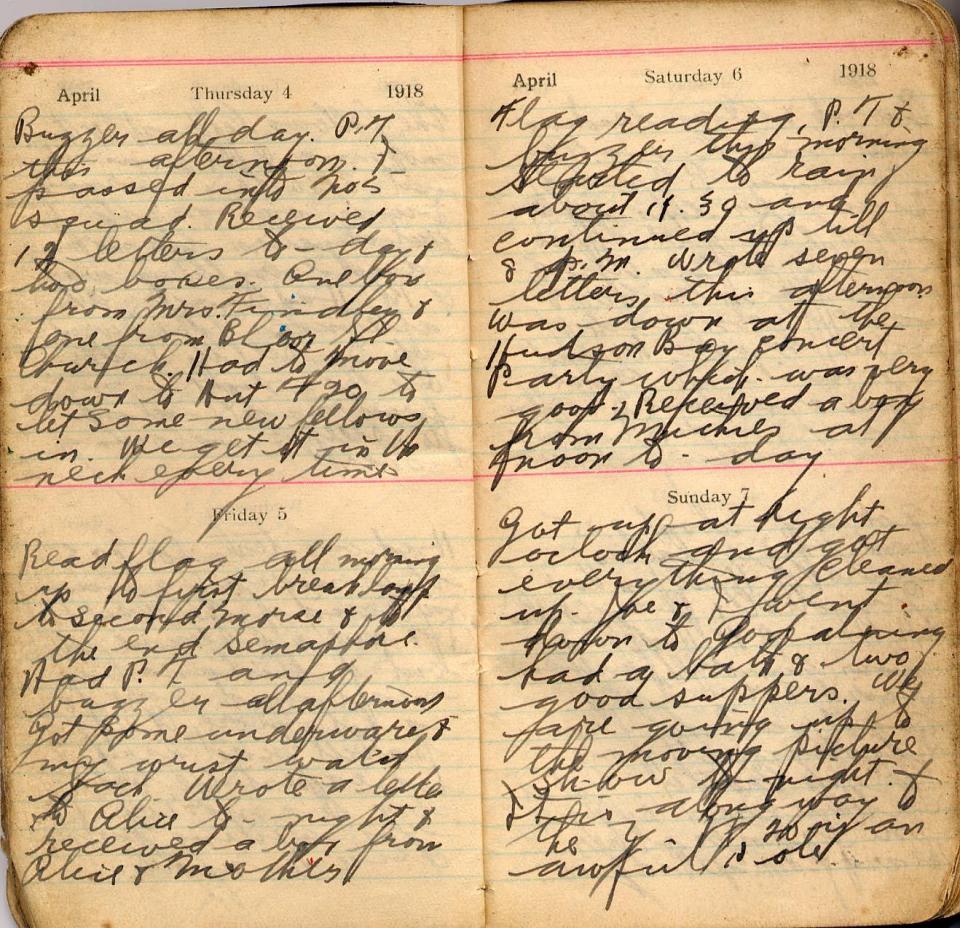 April Thursday 4 1918
Buzzer all day. P.T
this afternoon. I
passed into No 5
squad. Received
12 letters to-day &
two boxes. One box
from Mrs. Findley &
one from Bloor St
Church. Had to move
down to Hut to
let some new fellows
in. We get it in the
neck every time
Friday 5
Read flag all morning
up to first break off
to second morse & off
the end semaphore.
Had P.T and
buzzer all afternoon
Got some underware &
my wrist watch
back. Wrote a letter
to Alice to-night &
received a box from
Alice & Mother
April Saturday 6 1918
Flag reading, P.T &
buzzer this morning
Started to rain
about 11.30 and
continued up till
8 p.m. Wrote seven
letters this afternoon
was down at the
Hudson Bay concert
Party which was very
good. Received a box
from at
noon to-day
Sunday 7
Got up at eight
oclock and got
everything cleaned
up. & I went
down to Godalming
had a bath & two
good suppers. We
are going up to
the moving picture
show to night.
It is a long way to
the
awful